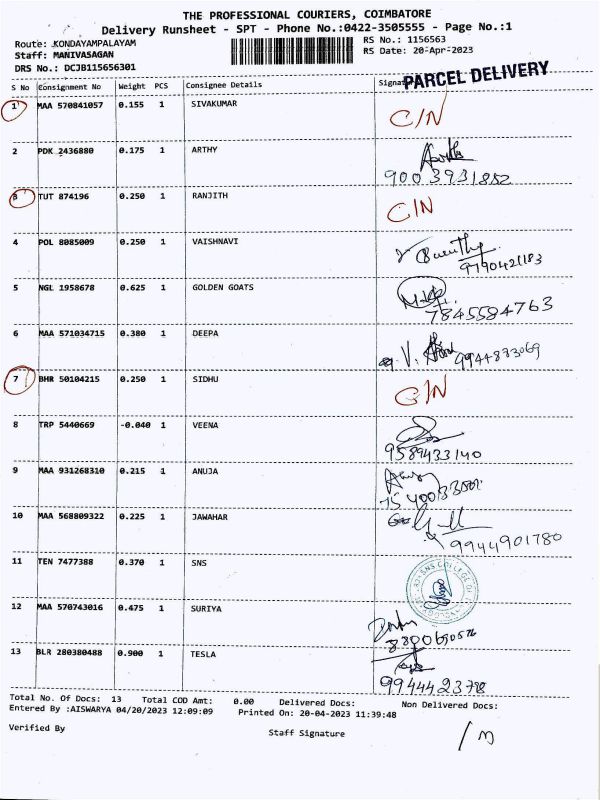 THE PROFESSIONAL COURIERS, COIMBATORE
Delivery Runsheet - SPT - Phone No.:0422-3505555 - Page No.:1
Route: KONDAYAMPALAYAM RS No.: 1156563
Staff: MANIVASAGAN RS Date: 20-Apr-2023
DRS No.: DCJB115656301
PARCEL DELIVERY
S No Consignment No Weight PCS Consignee Details
1 MAA 570841057 0.155 1 SIVAKUMAR C/N
2 PDK 2436880 0.175 1 ARTHY
9003931852
3 TUT 874196 0.250 1 RANJITH C/N
4 POL 8085009 0.250 1 VAISHNAVI
9790421183
5 NGL 1958678 0.625 1 GOLDEN GOATS
7845584763
6 MAA 571034715 0.380 1 DEEPA
9944833069
7 BHR 50104215 0.250 1 SIDHU C/N
8 TRP 5440669 -0.040 1 VEENA
9589433140
9 MAA 931268310 0.215 1 ANUJA
10 MAA 568809322 0.225 1 JAWAHAR
9944901780
11 TEN 7477388 0.370 1 SNS
12 MAA 570743016 0.475 1 SURIYA
13 BLR 280380488 0.900 1 TESLA
Total No. Of Docs: 13 Total COD Amt: 0.00 Delivered Docs: Non Delivered Docs:
Entered By :AISWARYA 04/20/2023 12:09:09 Printed On: 20-04-2023 11:39:48
Verified By Staff Signature